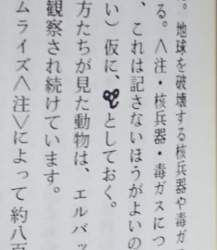 。地球を破壊する核兵器や毒ガ
る。〈注・核兵器・毒ガスにつ
、これは記さないほうがよいの
い）仮に、としておく。
方たちが見た動物は、エルバッ
観察され続けています。
ムライズ〈注〉によって約八百